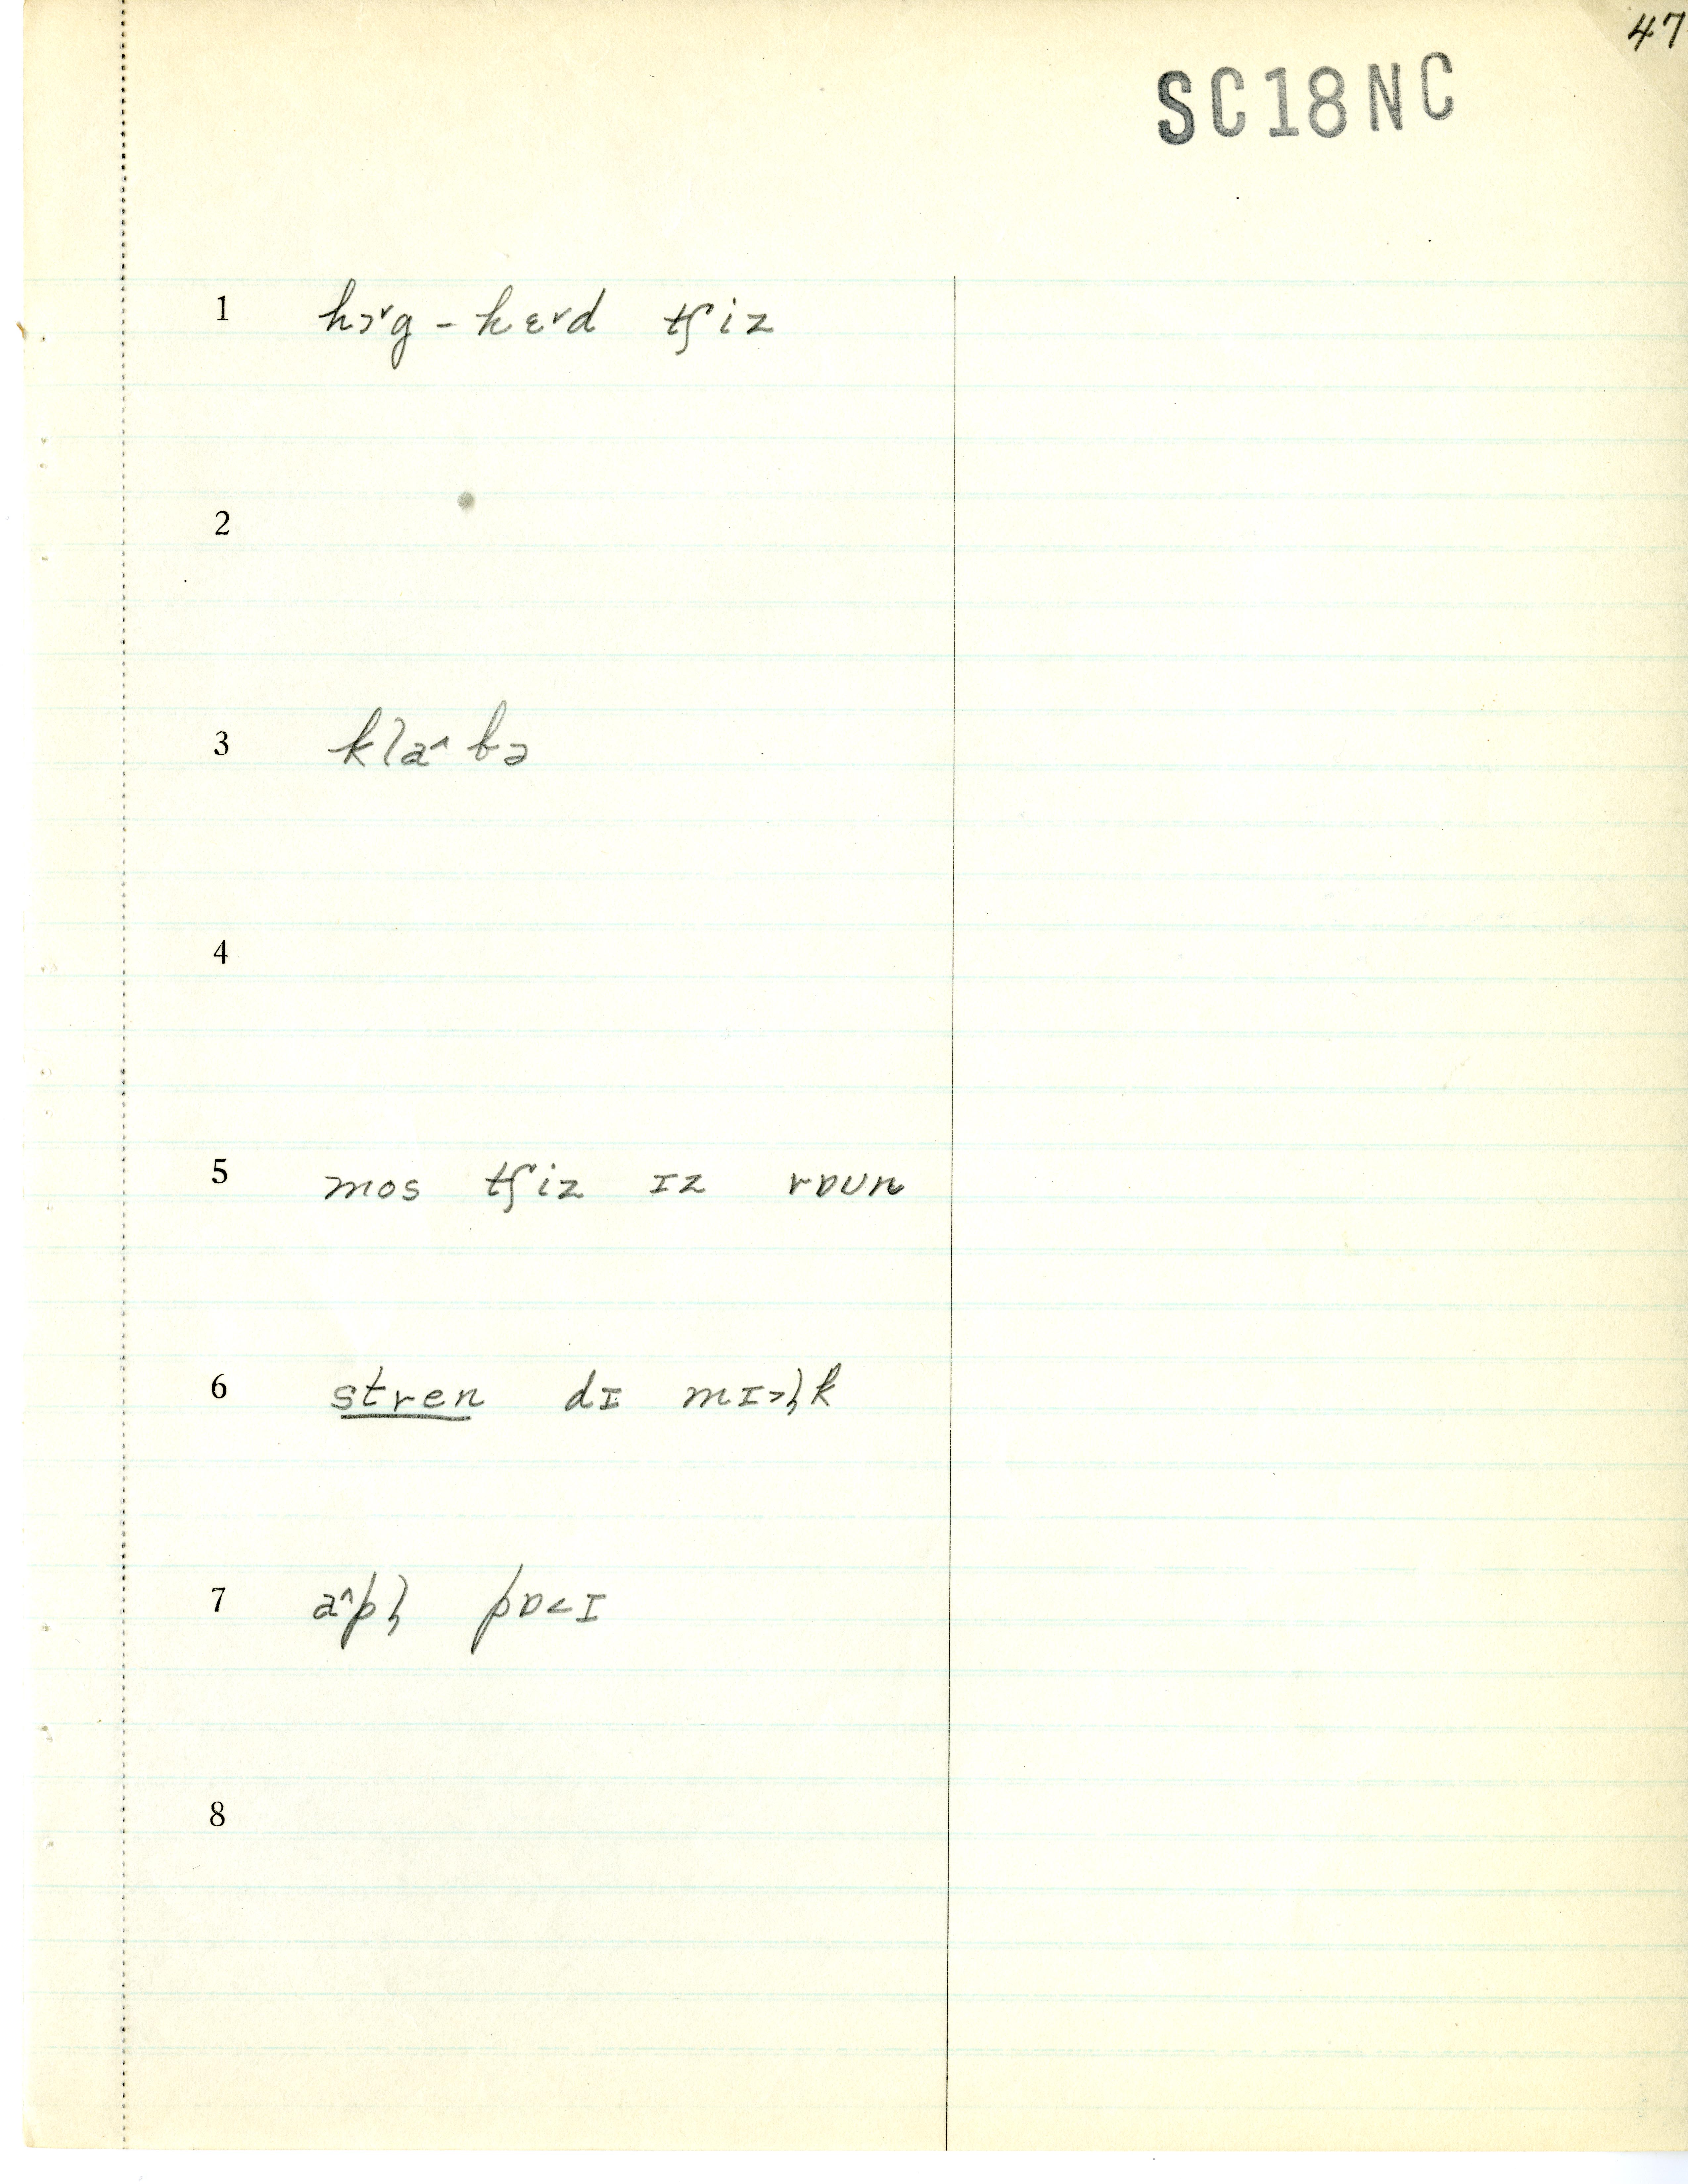 47
SC18NC
1 hɔ˅g - hɛ˅d tʃiz
2
3 klaˆbə
4
5 mos tʃiz ɪz rɒun
6 stren dɪ mɪ˃l̩k
7 aˆpl̩ pɒ˂ɪ
8